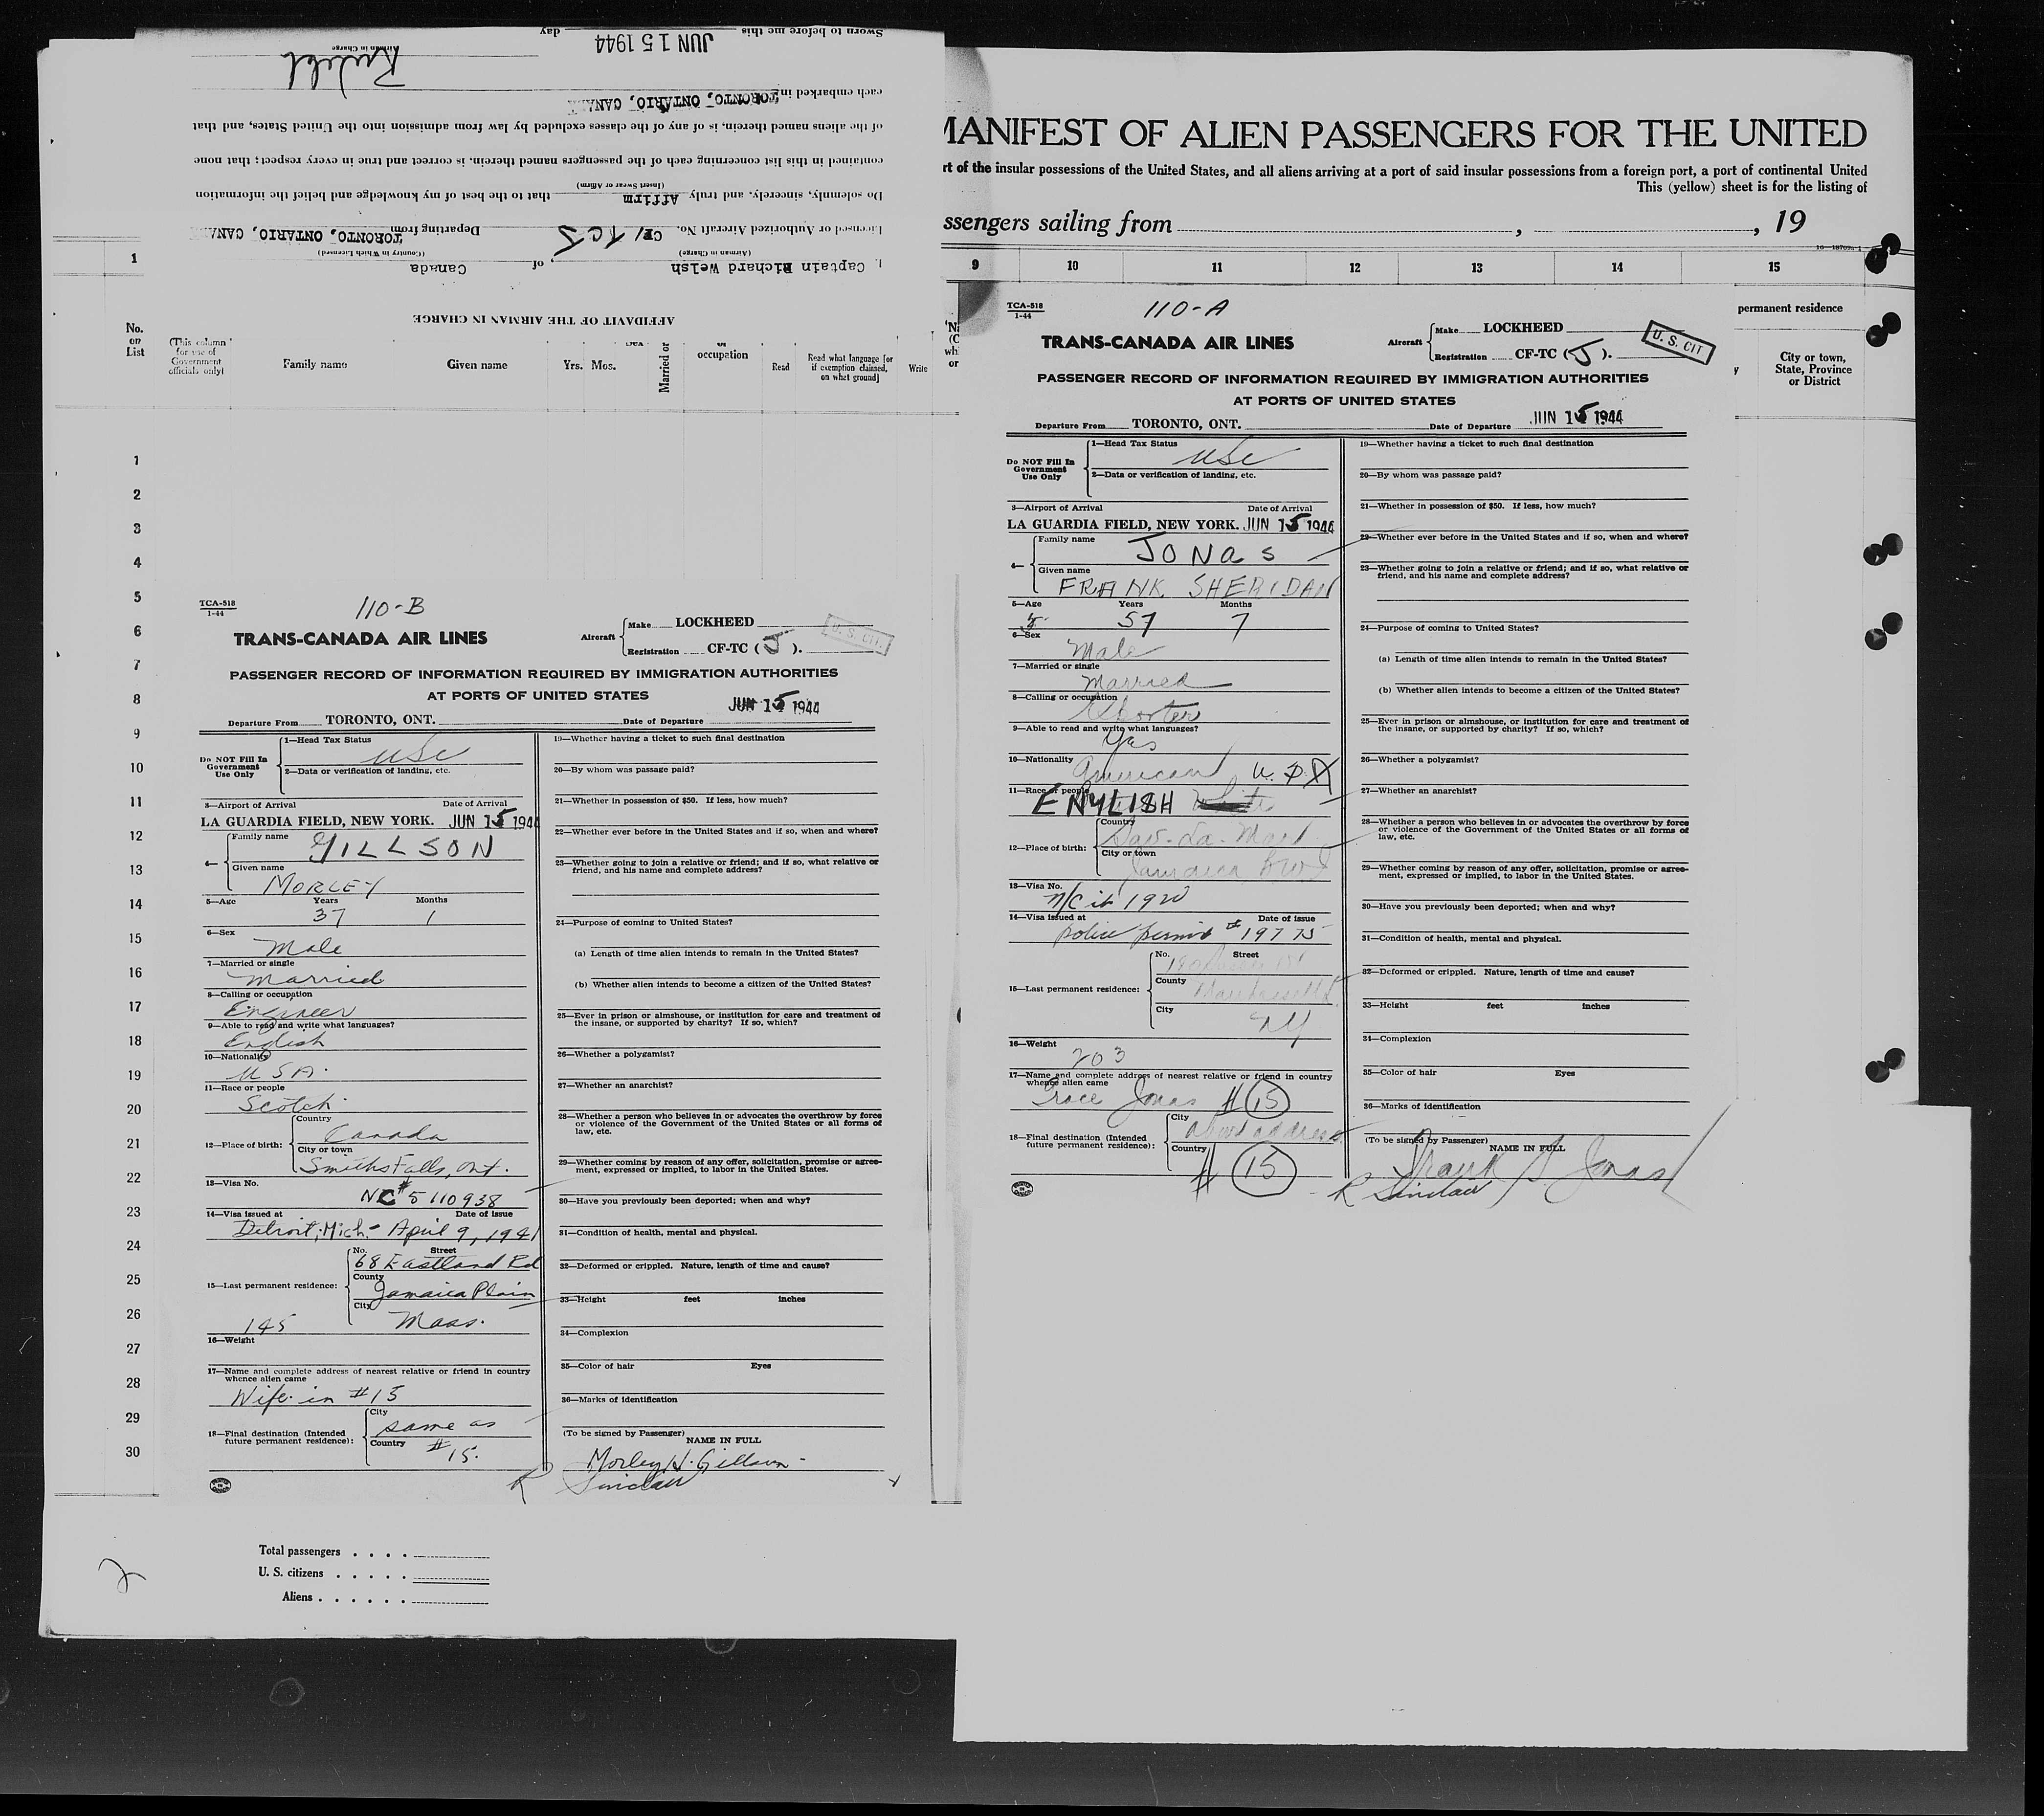 Sworn to before me this JUN 15 1944 day
Airman in Charge
each embarked in TORONTO, ONTARIO, CANA
of the aliens named therein, is of any of the classes excluded by law from admission into the United States, and that
contained in this list concerning each of the passengers named therein, is correct and true in every respect; that none
(Insert Swear or Affirm)
Do solemnly, sincerely, and truly Affirm that to the best of my knowledge and belief the information
Licensed or Authorized Aircraft No. CF/TCJ Departing from TORONTO, ONTARIO, CANA
(Airman in Charge) (Country in Which Licensed)
I, Captain Richard Welsh, of Canada
AFFIDAVIT OF THE AIRMAN IN CHARGE
1
No. on List
(This column for use of Government officials only)
Family name
Given name
Yrs. Mos.
Sex
Married or
or occupation
Read
Read what language [or if exemption claimed, on what ground]
Write
1
2
3
4
5
6
7
8
9
10
11
12
13
14
15
16
17
18
19
20
21
22
23
24
25
26
27
28
29
30
TCA-518
1-44
110-B
TRANS-CANADA AIR LINES
Aircraft
Make LOCKHEED
Registration CF-TC (J).
U. S. CIT.
PASSENGER RECORD OF INFORMATION REQUIRED BY IMMIGRATION AUTHORITIES
AT PORTS OF UNITED STATES
Departure From TORONTO, ONT. Date of Departure JUN 15 1944
Do NOT Fill In Government Use Only
1—Head Tax Status
USC
2—Data or verification of landing, etc.
3—Airport of Arrival Date of Arrival
LA GUARDIA FIELD, NEW YORK. JUN 15 1944
4—
Family name
GILLSON
Given name
MORLEY
5—Age Years Months
37 1
6—Sex
Male
7—Married or single
Married
8—Calling or occupation
Engineer
9—Able to read and write what languages?
English
10—Nationality
USA.
11—Race or people
Scotch
12—Place of birth:
Country
Canada
City or town
Smiths Falls, Ont.
13—Visa No.
NC# 5110938
14—Visa issued at Date of issue
Detroit, Mich - April 9, 1941
15—Last permanent residence:
No. Street
68 Eastland Rd
County
Jamaica Plain
City
Mass.
145
16—Weight
17—Name and complete address of nearest relative or friend in country
whence alien came
Wife in #15
18—Final destination (Intended
future permanent residence):
City
same as
Country
#15.
19—Whether having a ticket to such final destination
20—By whom was passage paid?
21—Whether in possession of $50. If less, how much?
22—Whether ever before in the United States and if so, when and where?
23—Whether going to join a relative or friend; and if so, what relative or
friend, and his name and complete address?
24—Purpose of coming to United States?
(a) Length of time alien intends to remain in the United States?
(b) Whether alien intends to become a citizen of the United States?
25—Ever in prison or almshouse, or institution for care and treatment of
the insane, or supported by charity? If so, which?
26—Whether a polygamist?
27—Whether an anarchist?
28—Whether a person who believes in or advocates the overthrow by force
or violence of the Government of the United States or all forms of
law, etc.
29—Whether coming by reason of any offer, solicitation, promise or agree-
ment, expressed or implied, to labor in the United States.
30—Have you previously been deported; when and why?
31—Condition of health, mental and physical.
32—Deformed or crippled. Nature, length of time and cause?
33—Height feet inches
34—Complexion
35—Color of hair Eyes
36—Marks of identification
(To be signed by Passenger)
NAME IN FULL
Morley H. Gillson
R Sinclair
Total passengers
U. S. citizens
Aliens
2
MANIFEST OF ALIEN PASSENGERS FOR THE UNITED
rt of the insular possessions of the United States, and all aliens arriving at a port of said insular possessions from a foreign port, a port of continental United
This (yellow) sheet is for the listing of
ssengers sailing from , , 19
9 10 11 12 13 14 15
permanent residence
City or town, State, Province or District
TCA-518
1-44
110-A
TRANS-CANADA AIR LINES
Aircraft
Make LOCKHEED
Registration CF-TC (J).
U. S. CIT
PASSENGER RECORD OF INFORMATION REQUIRED BY IMMIGRATION AUTHORITIES
AT PORTS OF UNITED STATES
Departure From TORONTO, ONT. Date of Departure JUN 15 1944
Do NOT Fill In Government Use Only
1—Head Tax Status
USC
2—Data or verification of landing, etc.
3—Airport of Arrival Date of Arrival
LA GUARDIA FIELD, NEW YORK. JUN 15 1944
4—
Family name
JONAS
Given name
FRANK SHERIDAN
5—Age Years Months
57 7
6—Sex
Male
7—Married or single
Married
8—Calling or occupation
9—Able to read and write what languages?
Yes
10—Nationality
American
11—Race or people
ENGLISH White
12—Place of birth:
Country
Sav-La-Mar
City or town
Jamaica BWI
13—Visa No.
1920
14—Visa issued at Date of issue
police permit # 19775
15—Last permanent residence:
No. Street
County
City
NY
16—Weight
203
17—Name and complete address of nearest relative or friend in country
whence alien came
Grace Jonas # 15
18—Final destination (Intended
future permanent residence):
City
above address
Country
# 15
19—Whether having a ticket to such final destination
20—By whom was passage paid?
21—Whether in possession of $50. If less, how much?
22—Whether ever before in the United States and if so, when and where?
23—Whether going to join a relative or friend; and if so, what relative or
friend, and his name and complete address?
24—Purpose of coming to United States?
(a) Length of time alien intends to remain in the United States?
(b) Whether alien intends to become a citizen of the United States?
25—Ever in prison or almshouse, or institution for care and treatment of
the insane, or supported by charity? If so, which?
26—Whether a polygamist?
27—Whether an anarchist?
28—Whether a person who believes in or advocates the overthrow by force
or violence of the Government of the United States or all forms of
law, etc.
29—Whether coming by reason of any offer, solicitation, promise or agree-
ment, expressed or implied, to labor in the United States.
30—Have you previously been deported; when and why?
31—Condition of health, mental and physical.
32—Deformed or crippled. Nature, length of time and cause?
33—Height feet inches
34—Complexion
35—Color of hair Eyes
36—Marks of identification
(To be signed by Passenger)
NAME IN FULL
Frank S. Jonas
R Sinclair